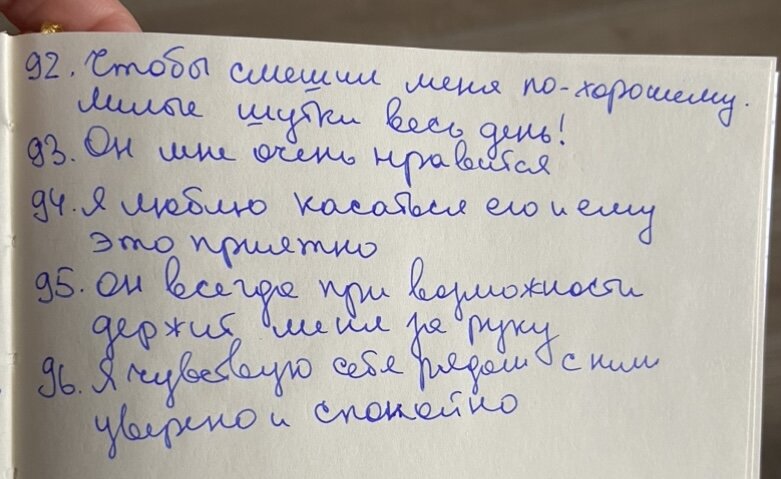 92. Чтобы смешил меня по-хорошему.
Милые шутки весь день!
93. Он мне очень нравится
94. Я люблю касаться его и ему
это приятно
95. Он всегда при возможности
держит меня за руку
96. Я чувствую себя рядом с ним
уверено и спокойно